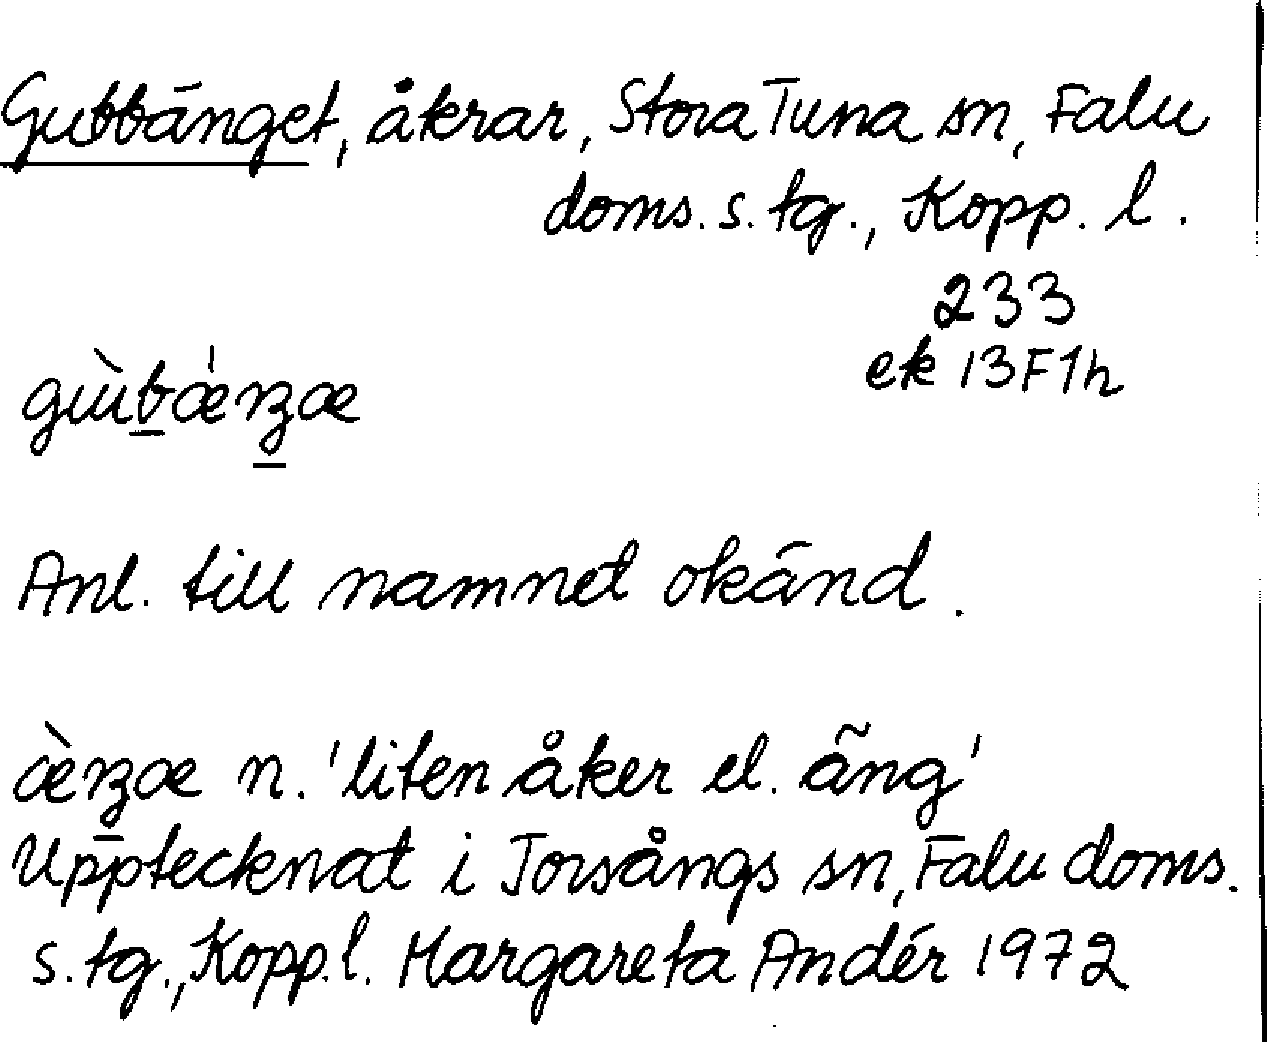 Gubbänget, åkrar, Stora Tuna sn, Falu
doms. s. tg., Kopp. l.
233
ek 13F1h
gùbǽnʒæ
Anl. till namnet okänd.
æ̀nʒæ n. 'liten åker el. äng'
Upptecknat i Torsångs sn, Falu doms.
s. tg., Kopp. l. Margareta Andér 1972